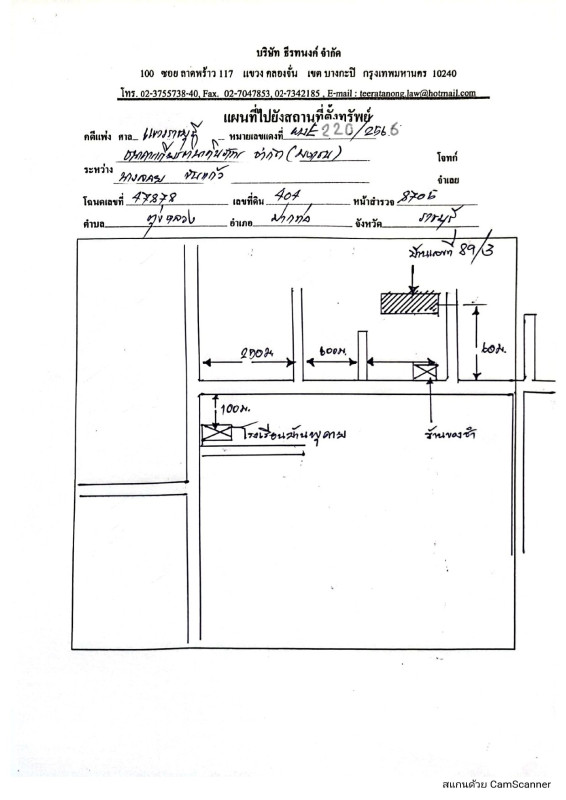 บริษัท ธีรทนงค์ จำกัด
100 ซอย ลาดพร้าว 117 แขวง คลองจั่น เขต บางกะปิ กรุงเทพมหานคร 10240
โทร. 02-3755738-40, Fax. 02-7047853, 02-7342185 , E-mail : teeratanong.law@hotmail.com
แผนที่ไปยังสถานที่ตั้งทรัพย์
คดีแพ่ง ศาล หมายเลขแดงที่ 220/2566
จำกัด (มหาชน) โจทก์
ระหว่าง จำเลย
โฉนดเลขที่ 47878 เลขที่ดิน 404 หน้าสำรวจ 8706
ตำบล ทุ่งหลวง อำเภอ ปากท่อ จังหวัด ราชบุรี
บ้านเลขที่ 89/3
250ม 600ม. 60ม.
100ม.
โรงเรียนบ้านพุคาย ร้านของชำ
สแกนด้วย CamScanner